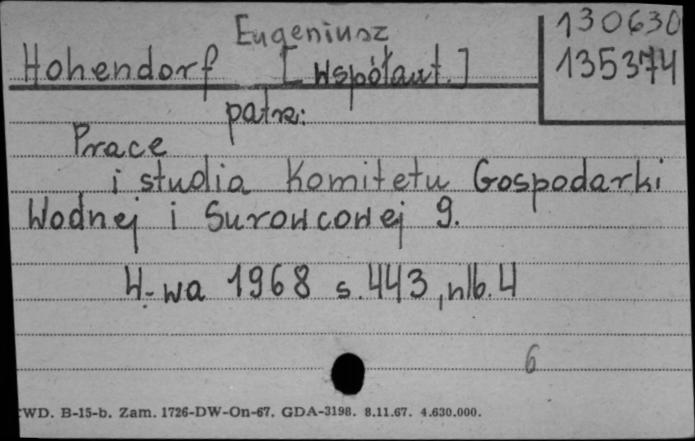 Eugeniusz
130630
Hohendorf [Współaut.]
135374
patrz:
Prace
i studia Komitetu Gospodarki
Wodnej i Surowcowej 9.
W-wa 1968 s.443, nlb.4
6
WD. B-15-b. Zam. 1726-DW-On-67. GDA-3198. 8.11.67. 4.630.000.